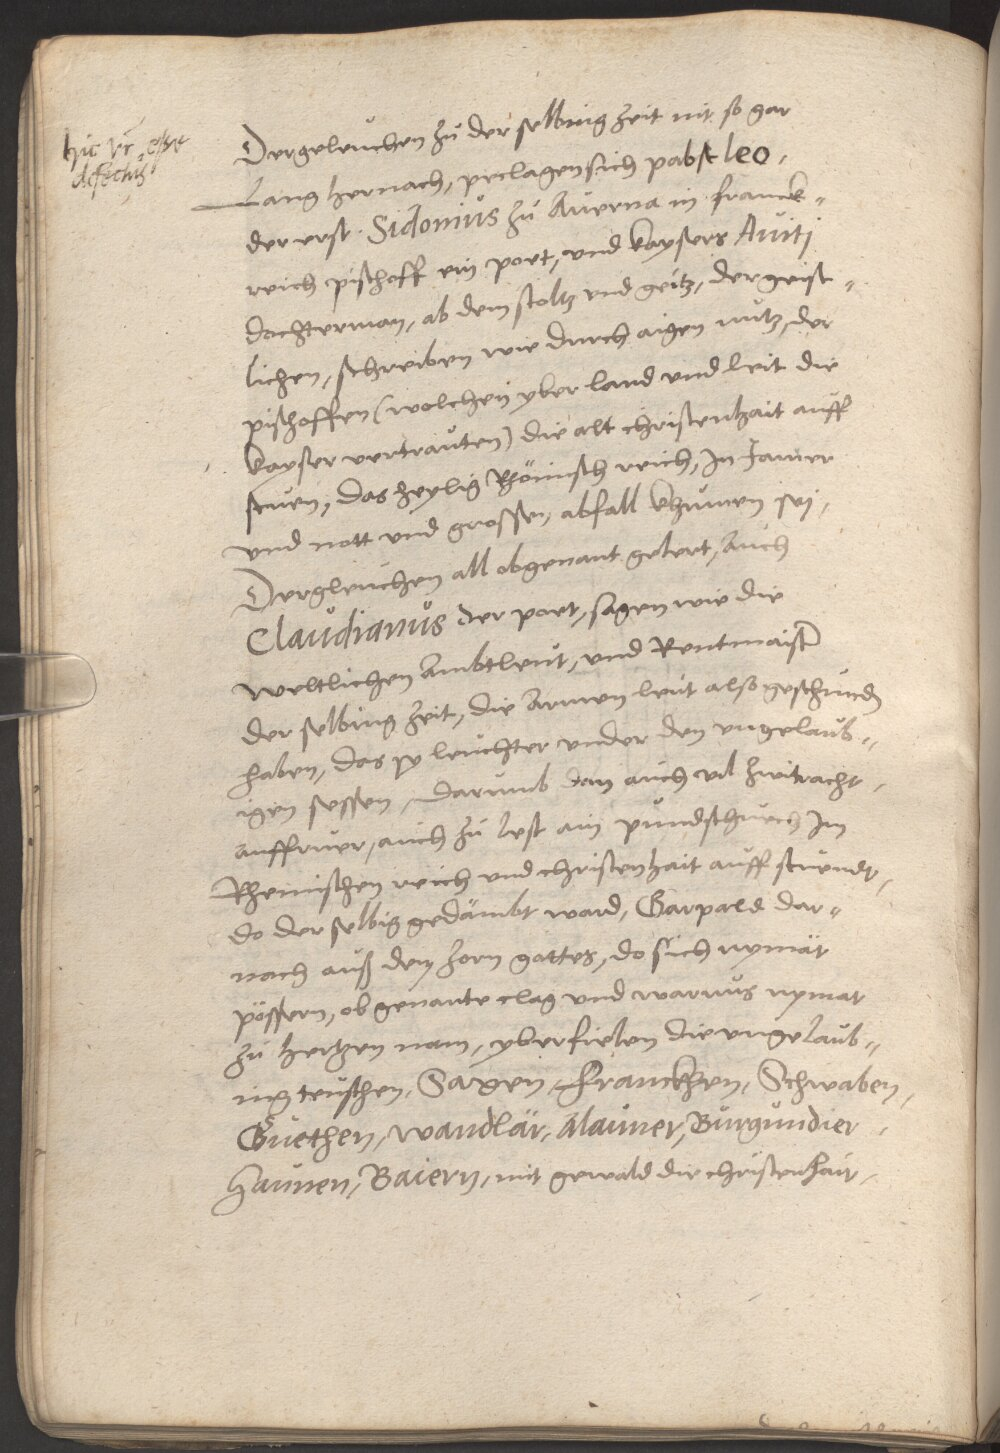 hic vr̃ esse
defectus
Dergeleuchen zu der selbing zeit nit so gar
Lang hernach, peclagen sich pabst leo,
der erst. Sidonius zu Auerna in franck=
reich pischoff ein poet, und kaysers Aviti
dochterman, ab dem stoltz vnd geitz, der geist=
lichen, schreiben wie durch aigen nutz, der
pischoffen (wolchen yber land vnd leit die
kayser vertrauten) die alt christenhait auff
, das heylig Rhömisch reich, In Jamer
vnd nott vnd grossen, abfall khumen sej,
Dergleuchen all obgenant gelert, Auch
Claudianus der poet, sagen wie die
weltlichen Ambtleut, vnd Rentmaister
der selbing Zeit, die Armen leut also geschunden
haben, das sy leuchter vnder den vngelaub=
igen sessen, Darumb dan auch vil zwitracht,
auffruer, auch zu lest ain pundschuech Im
Rhemischen reich vnd christenhait auff stuendt,
do der selbig gedämbt ward, Garpald dar=
nach auß dem Zorn gottes, do sich nymät
pössern, obgenante clag vnd warnus nymat
zu hertzen nam, yberfielen die vngelaub=
nig teuschen, Saxen, Franckhen, Schwaben,
Guethen, Wandlär, Alauner, Burgundier,
Haunen, Baiern, mit gewald die christenhait,